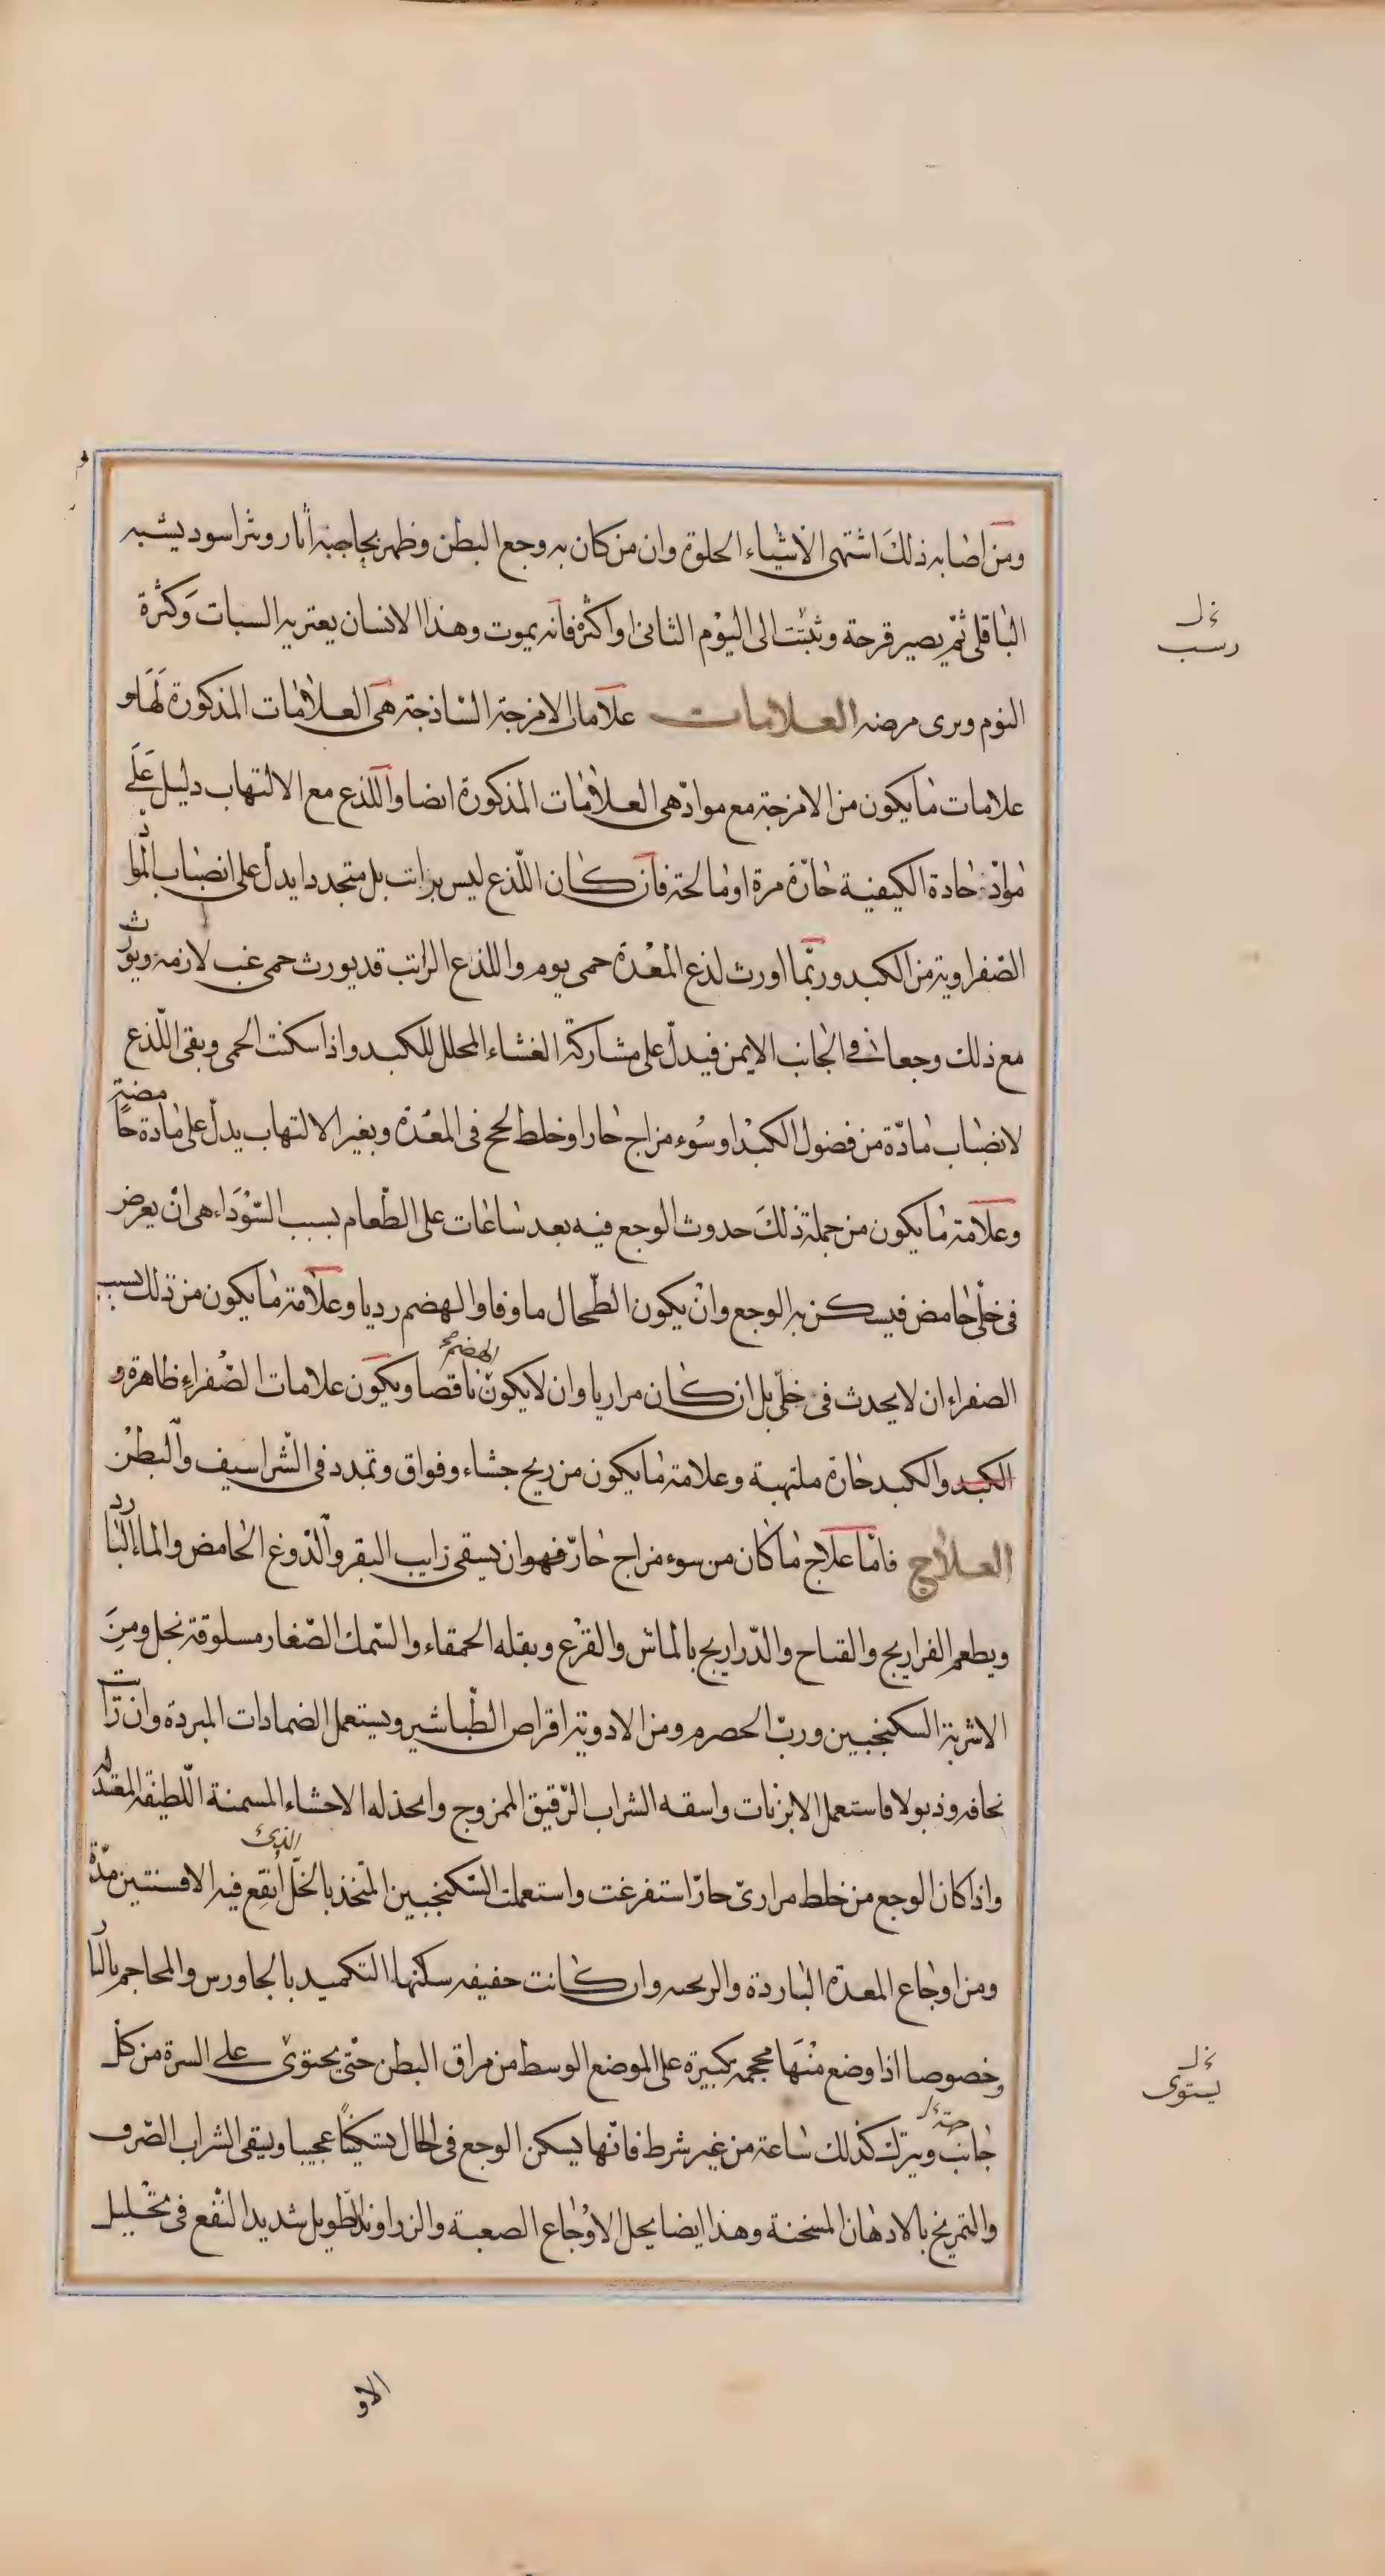 ومن اصابه ذلك اشتهى الاشياء الحلوة وان من كان به وجع البطن وظهر بحاجبه اثار وبثر اسود يشبه
الباقلى ثم يصير قرحة وثبتت الى اليوم الثانى او اكثر فانه يموت وهذا الانسان يعتريه السبات وكثرة
رسب
النوم ويرى مرضه العلامات علامات الامزجة الساذجة هى العلامات المذكورة لها و
علامات ما يكون من الامزجة مع مواد هى العلامات المذكورة ايضا واللذع مع الالتهاب دليل على
مواد حادة الكيفية حارة مرة او مالحة فان كان اللذع ليس براتب بل متجددا يدل على انصباب المواد
الصفراوية من الكبد وربما اورث لذع المعدة حمى يوم واللذع الراتب قد يورث حمى غب لازمة ويورث
مع ذلك وجعا فى الجانب الايمن فيدل على مشاركة الغشاء المحلل للكبد واذا سكنت الحمى وبقى اللذع
لانصباب مادة من فضول الكبد او سوء مزاج حار او خلط لحج فى المعدة وبغير الالتهاب يدل على مادة حامضة
وعلامة ما يكون من جملة ذلك حدوث الوجع فيه بعد ساعات على الطعام بسبب السوداء هى ان يعرض
فى خلى حامض فيسكن به الوجع وان يكون الطحال ماوفا والهضم رديا وعلامة ما يكون من ذلك بسبب
الصفراء ان لا يحدث فى خلى بل ان كان مراريا وان لا يكون الهضم ناقصا ويكون علامات الصفراء ظاهرة و
الكبد والكبد حارة ملتهبة وعلامة ما يكون من ريح جشاء وفواق وتمدد فى الشراسيف والبطن
العلاج فاما علاج ما كان من سوء مزاج حار فهو ان يسقى رايب البقر والدوغ الحامض والماء البارد
ويطعم الفراريج والقباح والدراريج بالماش والقرع وبقلة الحمقاء والسمك الصغار مسلوقة بخل ومن
الاشربة السكنجبين ورب الحصرم ومن الادوية اقراص الطباشير ويستعمل الضمادات المبردة وان رات
نحافة وذبولا فاستعمل الابزنات واسقه الشراب الرقيق الممزوج واتخذ له الاحشاء المسمنة اللطيفة المعتدلة
واذا كان الوجع من خلط مرارى حار استفرغت واستعملت السكنجبين المتخذ بالخل الذى انقع فيه الافسنتين مدة
ومن اوجاع المعدة الباردة والريحيه وان كانت خفيفة سكنها التكميد بالجاورس والمحاجم بالنار
وخصوصا اذا وضع منها محجمة كبيرة على الموضع الوسط من مراق البطن حتى يحتوى على السرة من كل
يستوى
جانب ويترك كذلك ساعة من غير شرط فانها يسكن الوجع فى الحال تسكينا عجيبا ويسقى الشراب الصرف
والتمريخ بالادهان المسخنة وهذا ايضا يحل الاوجاع الصعبة والزراوند الطويل شديد النفع فى تحليل
الاو